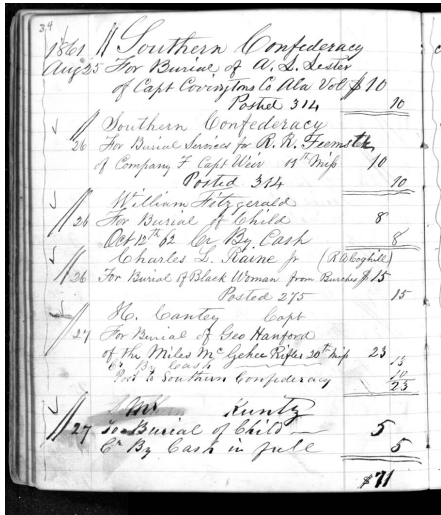 34
1861 // Southern Confederacy
Aug 25 For Burial of A. L. Lester
of Capt Covingtons Co Ala Vol $ 10
Posted 314 10
// Southern Confederacy
26 For Burial Services for R. R. Feemster
of Company F Capt Weir 11th Miss 10
Posted 314 10
// William Fitzgerald
26 For Burial of Child 8
Oct 12th 62 Cr By Cash 8
// Charles L. Raine Jr (R A Coghill)
26 For Burial of Black Woman from Burches $ 15
Posted 275 15
// H. Cantey Capt
27 For Burial of Geo Hanford
of the Miles McGehee Rifles 20th Miss 23
Cr By Cash 13
Post to Southern Confederacy 10
23
// Mr Kuntz
27 To Burial of Child 5
Cr By Cash in full 5
$71